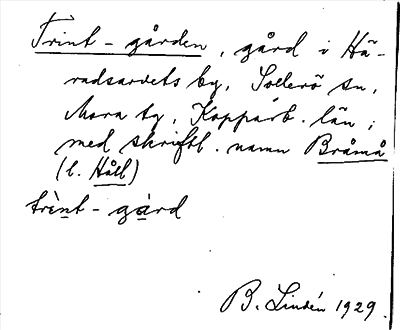 Trint-gården, gård i Hä-
radsarvets by, Sollerö sn,
Mora tg, Kopparb. län;
med skriftl. namn Bråmå
(l. Håll)
trìnt-gàrd
B. Lindén 1929.